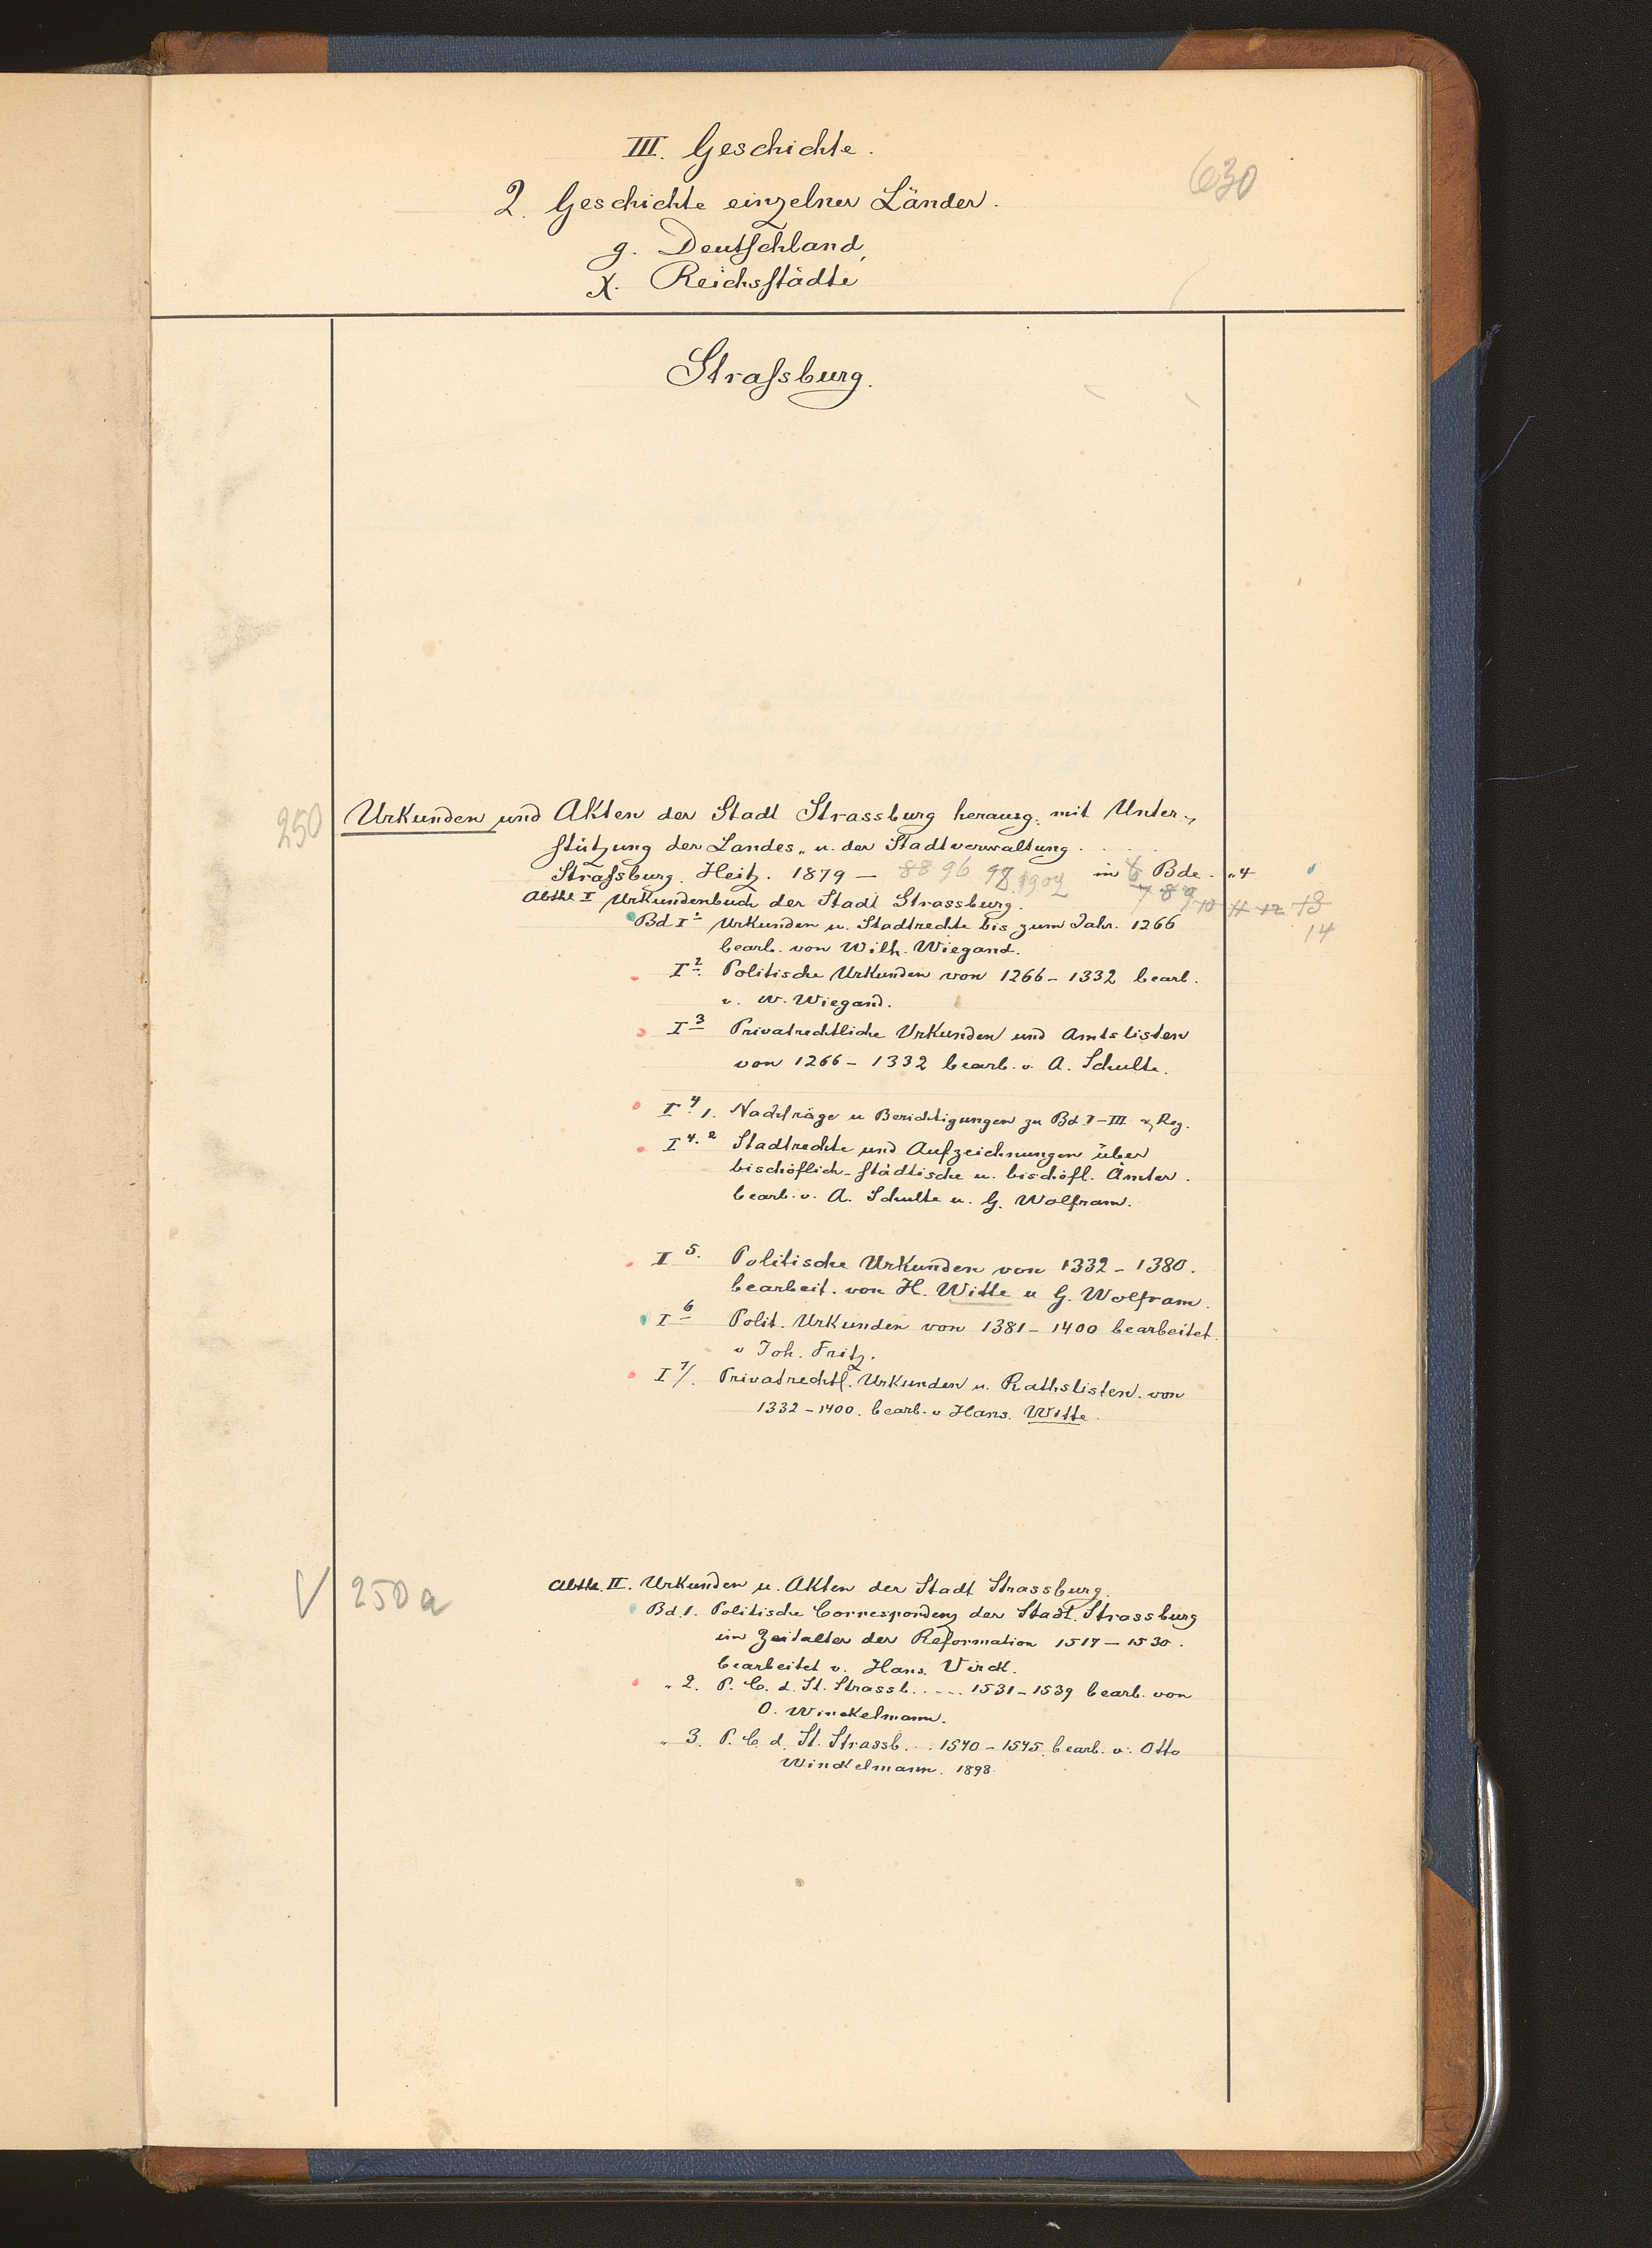 III. Geschichte.
630
2. Geschichte einzelner Länder.
g. Deutschland,
X. Reichsstädte
Strassburg.
250 Urkunden und Akten der Stadt Strassburg herausg. mit Unter-
stützung der Landes- u. der Stadtverwaltung.
Strassburg. Heitz. 1879 – 88 96 98 1902 in 6 Bde. "4
7 8 9 10 11 12 13
14
Abthl I Urkundenbuch der Stadt Strassburg.
Bd I 1 Urkunden u. Stadtrechte bis zum Jahr. 1266
bearb. von Wilh. Wiegand.
I 2. Politische Urkunden von 1266 – 1332 bearb.
v. W. Wiegand.
I 3 Privatrechtliche Urkunden und Amtslisten
von 1266 – 1332 bearb. v. A. Schulte.
I 4. 1. Nachträge u Berichtigungen zu Bd I–III u. Reg.
I 4. 2 Stadtrechte und Aufzeichnungen über
bischöflich-städtische u. bischöfl. Ämter.
bearb. v. A. Schulte u. G. Wolfram.
I 5. Politische Urkunden von 1332 – 1380.
bearbeit. von H. Witte u G. Wolfram.
I 6 Polit. Urkunden von 1381 – 1400 bearbeitet
v Joh. Fritz.
I 7/. Privatrechtl. Urkunden u. Rathslisten. von
1332 – 1400. bearb. v Hans. Witte.
250a Abthl. II. Urkunden u. Akten der Stadt Strassburg.
Bd. 1. Politische Correspondenz der Stadt. Strassburg
im Zeitalter der Reformation 1517 – 1530.
bearbeitet v. Hans. Virck.
" 2. P. C. d. St. Strassb. .... 1531 – 1539 bearb. von
O. Winckelmann.
" 3. P. C. d. St. Strassb. ... 1540 – 1545. bearb. v. Otto
Winckelmann. 1898